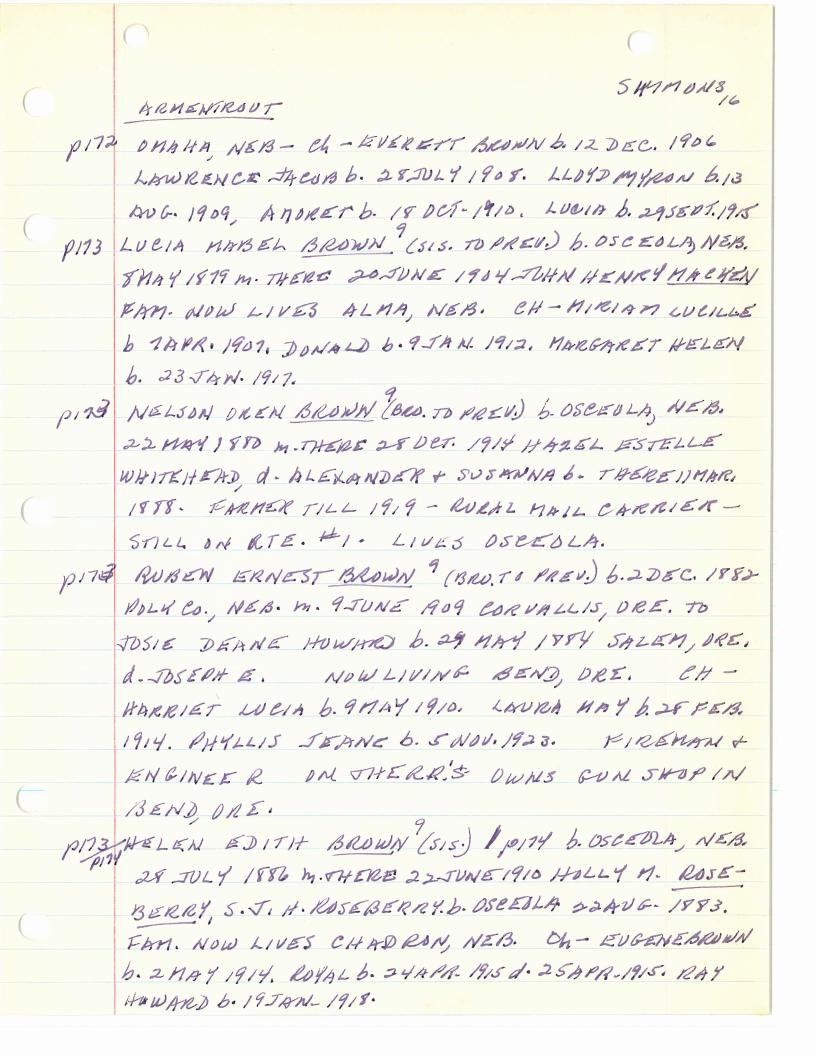 SIMMONS
16
ARMENTROUT
p172 OMAHA, NEB - Ch - EVERETT BROWN b. 12 DEC. 1906
LAWRENCE JACOB b. 28 JULY 1908. LLOYD MYRON b. 13
AUG. 1909, AUDRET b. 18 OCT. 1910. LUCIA b. 29 SEPT. 1915
p173 LUCIA MABEL BROWN 9 (SIS. TO PREV.) b. OSCEOLA, NEB.
8 MAY 1879 m. THERE 20 JUNE 1904 JOHN HENRY MACKEN
FAM. NOW LIVES ALMA, NEB. CH - MIRIAM LUCILLE
b 7 APR. 1907. DONALD b. 9 JAN. 1912. MARGARET HELEN
b. 23 JAN. 1917.
p173 NELSON OREN BROWN 9 (BRO. TO PREV.) b. OSCEOLA, NEB.
22 MAY 1880 m. THERE 28 OCT. 1914 HAZEL ESTELLE
WHITEHEAD, d. ALEXANDER + SUSANNA b. THERE 11 MAR.
1888. FARMER TILL 1919 - RURAL MAIL CARRIER -
STILL ON RTE. #1. LIVES OSCEOLA.
p173 RUBEN ERNEST BROWN 9 (BRO. TO PREV.) b. 2 DEC. 1882
POLK CO., NEB. m. 9 JUNE 1909 CORVALLIS, ORE. TO
JOSIE DEANE HOWARD b. 29 MAY 1884 SALEM, ORE.
d. JOSEPH E. NOW LIVING BEND, ORE. CH -
HARRIET LUCIA b. 9 MAY 1910. LAURA MAY b. 28 FEB.
1914. PHYLLIS JEANE b. 5 NOV. 1923. FIREMAN +
ENGINEER ON THE RR'S OWNS GUN SHOP IN
BEND, ORE.
p173/p174 HELEN EDITH BROWN 9 (SIS.) p174 b. OSCEOLA, NEB.
28 JULY 1886 m. THERE 22 JUNE 1910 HOLLY M. ROSE-
BERRY, S. J. H. ROSEBERRY. b. OSCEOLA 22 AUG. 1883.
FAM. NOW LIVES CHADRON, NEB. Ch - EUGENE BROWN
b. 2 MAY 1914. ROYAL b. 24 APR. 1915 d. 25 APR. 1915. RAY
HOWARD b. 19 JAN. 1918.